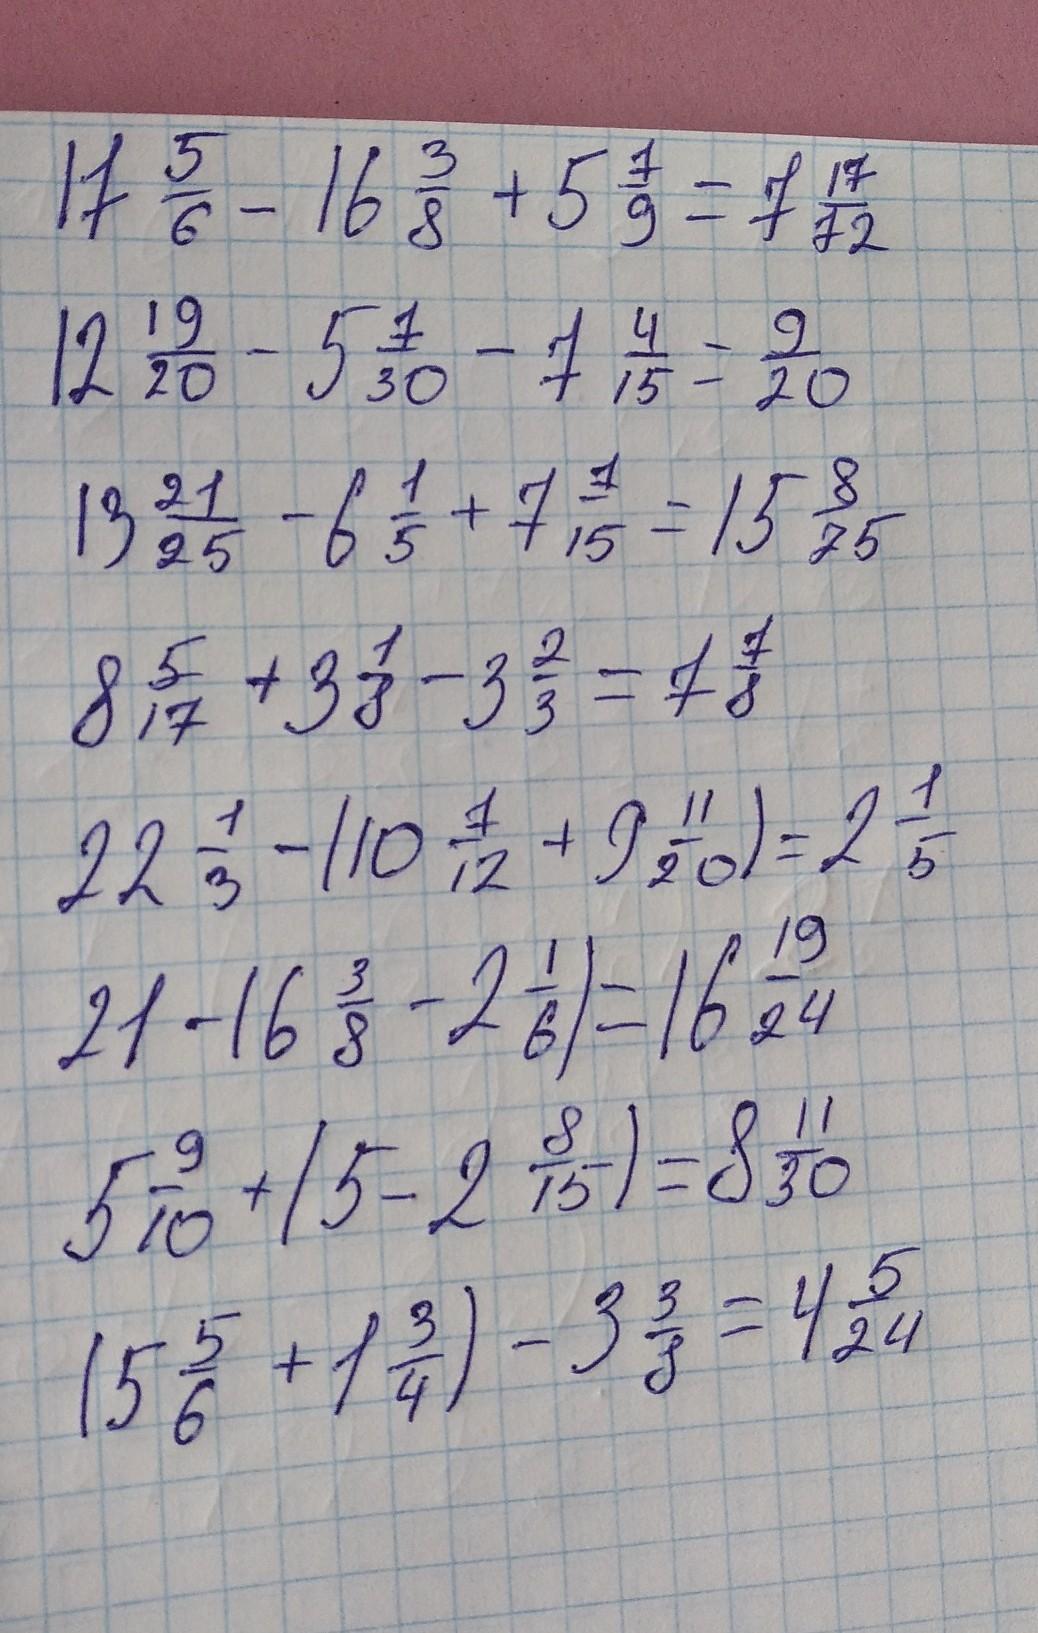 17 5/6 - 16 3/8 + 5 7/9 = 7 17/72
12 19/20 - 5 7/30 - 7 4/15 = 9/20
13 21/25 - 6 1/5 + 7 7/15 = 15 8/75
8 5/17 + 3 1/8 - 3 2/3 = 7 7/8
22 1/3 - (10 7/12 + 9 11/20) = 2 1/5
21 - (6 3/8 - 2 1/6) = 16 19/24
5 9/10 + (5 - 2 8/15) = 8 11/30
(5 5/6 + 1 3/4) - 3 3/8 = 4 5/24